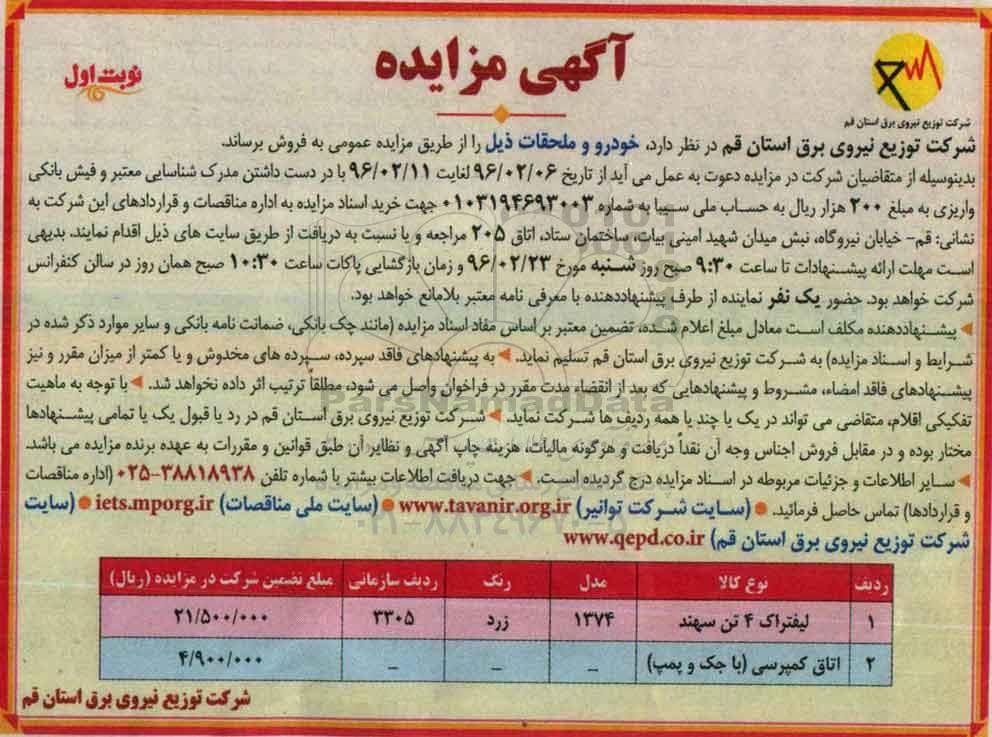 آگهی مزایده
نوبت اول
شرکت توزیع نیروی برق استان قم
شرکت توزیع نیروی برق استان قم در نظر دارد، خودرو و ملحقات ذیل را از طریق مزایده عمومی به فروش برساند.
بدینوسیله از متقاضیان شرکت در مزایده دعوت به عمل می آید از تاریخ ۹۶/۰۲/۰۶ لغایت ۹۶/۰۲/۱۱ با در دست داشتن مدرک شناسایی معتبر و فیش بانکی
واریزی به مبلغ ۲۰۰ هزار ریال به حساب ملی سیبا به شماره ۰۱۰۳۱۹۴۶۹۳۰۰۳ جهت خرید اسناد مزایده به اداره مناقصات و قراردادهای این شرکت به
نشانی: قم- خیابان نیروگاه، نبش میدان شهید امینی بیات، ساختمان ستاد، اتاق ۲۰۵ مراجعه و یا نسبت به دریافت از طریق سایت های ذیل اقدام نمایند. بدیهی
است مهلت ارائه پیشنهادات تا ساعت ۹:۳۰ صبح روز شنبه مورخ ۹۶/۰۲/۲۳ و زمان بازگشایی پاکات ساعت ۱۰:۳۰ صبح همان روز در سالن کنفرانس
شرکت خواهد بود. حضور یک نفر نماینده از طرف پیشنهاددهنده با معرفی نامه معتبر بلامانع خواهد بود.
◄ پیشنهاددهنده مکلف است معادل مبلغ اعلام شده، تضمین معتبر بر اساس مفاد اسناد مزایده (مانند چک بانکی، ضمانت نامه بانکی و سایر موارد ذکر شده در
شرایط و اسناد مزایده) به شرکت توزیع نیروی برق استان قم تسلیم نماید. ◄ به پیشنهادهای فاقد سپرده، سپرده های مخدوش و یا کمتر از میزان مقرر و نیز
پیشنهادهای فاقد امضاء، مشروط و پیشنهادهایی که بعد از انقضاء مدت مقرر در فراخوان واصل می شود، مطلقاً ترتیب اثر داده نخواهد شد. ◄ با توجه به ماهیت
تفکیکی اقلام، متقاضی می تواند در یک یا چند یا همه ردیف ها شرکت نماید. ◄ شرکت توزیع نیروی برق استان قم در رد یا قبول یک یا تمامی پیشنهادها
مختار بوده و در مقابل فروش اجناس وجه آن نقداً دریافت و هرگونه مالیات، هزینه چاپ آگهی و نظایر آن طبق قوانین و مقررات به عهده برنده مزایده می باشد.
◄ سایر اطلاعات و جزئیات مربوطه در اسناد مزایده درج گردیده است. ◄ جهت دریافت اطلاعات بیشتر با شماره تلفن ۳۸۸۱۸۹۳۸-۰۲۵ (اداره مناقصات
و قراردادها) تماس حاصل فرمائید. ● (سایت شرکت توانیر) www.tavanir.org.ir ● (سایت ملی مناقصات) iets.mporg.ir ● (سایت
شرکت توزیع نیروی برق استان قم) www.qepd.co.ir
ردیف نوع کالا مدل رنگ ردیف سازمانی مبلغ تضمین شرکت در مزایده (ریال)
۱ لیفتراک ۴ تن سهند ۱۳۷۴ زرد ۳۳۰۵ ۲۱/۵۰۰/۰۰۰
۲ اتاق کمپرسی (با جک و پمپ) – – – ۴/۹۰۰/۰۰۰
شرکت توزیع نیروی برق استان قم
ParsNamadData